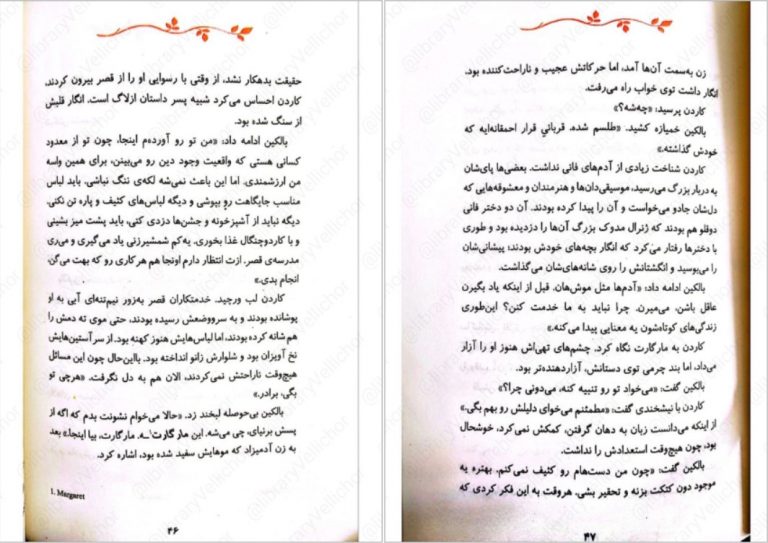 حقیقت بدهکار نشد، از وقتی با رسوایی او را از قصر بیرون کردند،
کاردن احساس می‌کرد شبیه پسر داستان ازلاگ است. انگار قلبش
از سنگ شده بود.
بالکین ادامه داد: «من تو رو آورده‌م اینجا، چون تو از معدود
کسانی هستی که واقعیت وجود دین رو می‌بینن، برای همین واسه
من ارزشمندی. اما این باعث نمی‌شه لکه‌ی ننگ نباشی. باید لباس
مناسب جایگاهت رو بپوشی و دیگه لباس‌های کثیف و پاره تن نکنی.
دیگه نباید از آشپزخونه و جشن‌ها دزدی کنی، باید پشت میز بشینی
و با کاردوچنگال غذا بخوری. یه‌کم شمشیرزنی یاد می‌گیری و می‌ری
مدرسه‌ی قصر. ازت انتظار دارم اونجا هم هر کاری رو که بهت می‌گن،
انجام بدی.»
کاردن لب ورچید. خدمتکاران قصر به‌زور نیم‌تنه‌ای آبی به او
پوشانده بودند و به سرووضعش رسیده بودند، حتی موی ته دمش را
هم شانه کرده بودند، اما لباس‌هایش هنوز کهنه بود. از سر آستین‌هایش
نخ آویزان بود و شلوارش زانو انداخته بود. بااین‌حال چون این مسائل
هیچ‌وقت ناراحتش نمی‌کردند، الان هم به دل نگرفت. «هرچی تو
بگی، برادر.»
بالکین بی‌حوصله لبخند زد. «حالا می‌خوام نشونت بدم که اگه از
پسش برنیای، چی می‌شه. این مارگارت¹ـه. مارگارت، بیا اینجا.» بعد
به زن آدمیزاد که موهایش سفید شده بود، اشاره کرد.
1. Margaret
۴۶
زن به‌سمت آن‌ها آمد، اما حرکاتش عجیب و ناراحت‌کننده بود.
انگار داشت توی خواب راه می‌رفت.
کاردن پرسید: «چه‌شه؟»
بالکین خمیازه کشید. «طلسم شده. قربانیِ قرار احمقانه‌ایه که
خودش گذاشته.»
کاردن شناخت زیادی از آدم‌های فانی نداشت. بعضی‌ها پای‌شان
به دربار بزرگ می‌رسید، موسیقی‌دان‌ها و هنرمندان و معشوقه‌هایی که
دل‌شان جادو می‌خواست و آن را پیدا کرده بودند. آن دو دختر فانی
دوقلو هم بودند که ژنرال مدوک بزرگ آن‌ها را دزدیده بود و طوری
با دخترها رفتار می‌کرد که انگار بچه‌های خودش بودند؛ پیشانی‌شان
را می‌بوسید و انگشتانش را روی شانه‌های‌شان می‌گذاشت.
بالکین ادامه داد: «آدم‌ها مثل موش‌هان. قبل از اینکه یاد بگیرن
عاقل باشن، می‌میرن. چرا نباید به ما خدمت کنن؟ این‌طوری
زندگی‌های کوتاه‌شون یه معنایی پیدا می‌کنه.»
کاردن به مارگارت نگاه کرد. چشم‌های تهی‌اش هنوز او را آزار
می‌داد، اما بند چرمی توی دستانش، آزاردهنده‌تر بود.
بالکین گفت: «می‌خواد تو رو تنبیه کنه، می‌دونی چرا؟»
کاردن با نیشخندی گفت: «مطمئنم می‌خوای دلیلش رو بهم بگی.»
از اینکه می‌دانست زبان به دهان گرفتن، کمکش نمی‌کرد، خوشحال
بود، چون هیچ‌وقت استعدادش را نداشت.
بالکین گفت: «چون من دست‌هام رو کثیف نمی‌کنم. بهتره یه
موجود دون کتکت بزنه و تحقیر بشی. هروقت به این فکر کردی که
۴۷